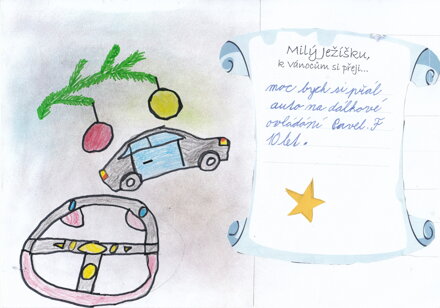 Milý Ježíšku,
k Vánocům si přeji...
moc bych si přál
auto na dálkové
ovládání Pavel. F
10 let.